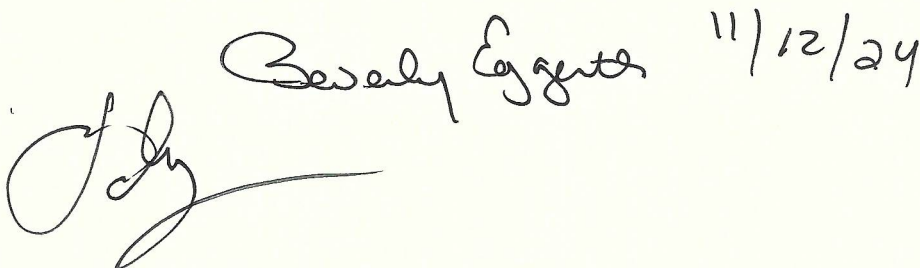 Beverly Eggerth 11/12/24